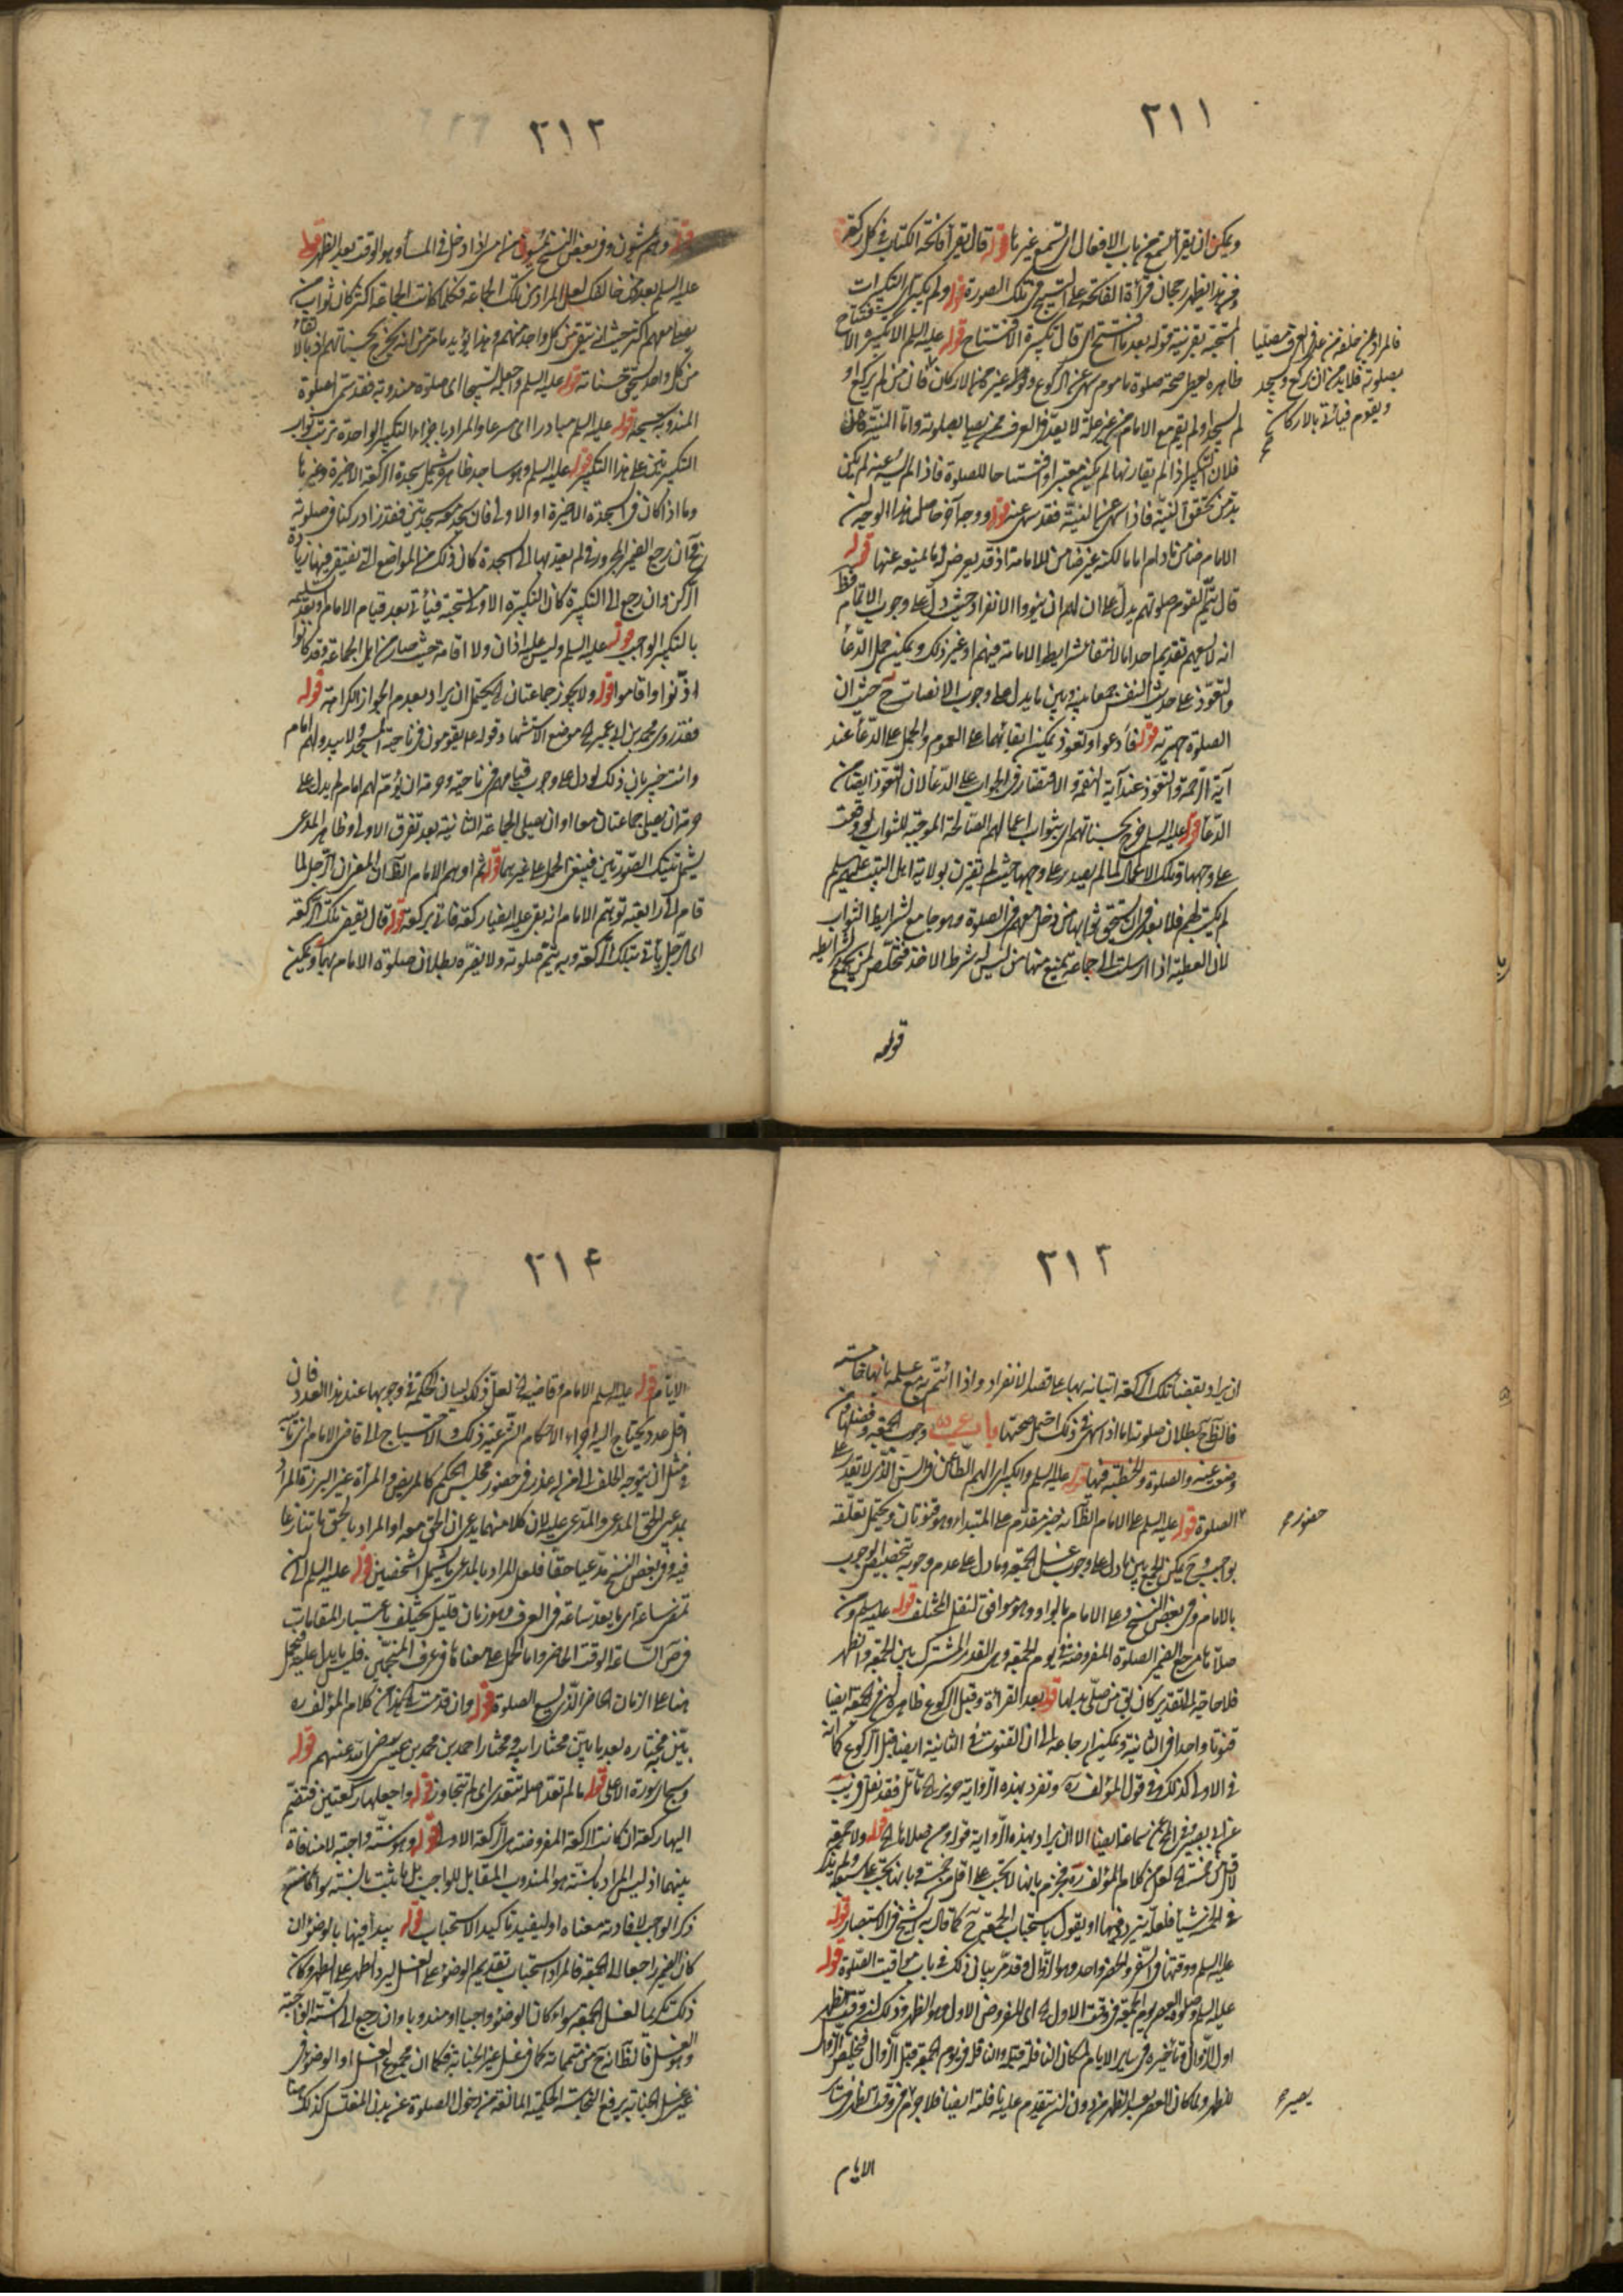 ٢١١
ويمكن ان يقرأ التسمع من باب الافعال اى تسمع غيرها قوله قال يقرأ فاتحة الكتاب فى كل ركعة
وفى هذا يظهر رجحان قرأة الفاتحة على التسبيح فى تلك الصورة قوله ولم يكبر تلك التكبيرات
المستحبة بقرينة قوله بعد ما افتتح اى قال تكبيرة الافتتاح قوله عليه السلم الا تكبيرة الافتتاح
ظاهره يعطى صحة صلوة ماموم سهى عن الركوع وغيره من الاركان فان من لم يركع او
لم يسجد او لم يقم مع الامام من غير علة لا يعد فى العرف ممن يصليا بصلوته واما النية
فلان التكبير اذا لم يقارنها لم يكن معتبرا وافتتاحا للصلوة فاذا لم ينسه عنه لم يكن
بد من تحقق النية فاذا سهى عن النية فقد سهى عنه قوله ووجه آخر حاصل هذا الوجه ان
الامام ضامن مادام اماما لكنه غير ضامن للامامة اذ قد يعرض له ما يمنعه عنها قوله
قال يتم القوم صلوتهم يدل على ان لهم ان ينووا الانفراد حيث دل على وجوب الاتمام
انه لا يسعهم تقديم احد اما لانتفاء شرايط الامامة فيهم او غير ذلك ويمكن حمل الدعأ
والتعوذ على حديث النفس جمعا بينه وبين ما يدل على وجوب الانصات ح حيث ان
الصلوة جهرية قوله فادعوا وتعوذ يمكن ابقائهما على العموم والحمل على الدعأ عند
آية الرحمة والتعوذ عند آية النقمة والاقتصار فى الجواب على الدعأ لان التعوذ ايضا من
الدعأ قوله عليه السلم خرج بحسناتهم اى بثواب اعمالهم الصالحة الموجبة للثواب لو وقعت
على وجهها وتلك الاعمال لما لم يصدر على وجهها حيث لم تقترن بولاية اهل البيت عليهم السلم
لم يكتب لهم فلا بعد فى ان يستحق ثوابها من دخل معهم فى الصلوة وهو جامع لشرايط الثواب
لان العطية اذا ارسلت الى جماعة يمنع منها من ليس له شرط الاخذ فتخلص لمن يجمع شرايطه
قوله
فالمراد بمن خلفه من على العرف مصليا
بصلوته فلا بد من ان يركع ويسجد
ويقوم فيأتى بالاركان
٢١٢
قوله وهم يمشون وفى بعض النسخ يمسون من امسى اذا دخل فى المسأ وهو الوقت بعد الظهر قوله
عليه السلم بعدد من خالفك لعل المراد من تلك الجماعة فكلما كانت الجماعة اكثر كان ثواب من
يصلى معهم اكثر حيث انه يتقى من كل واحد منهم وهذا يؤيد ما مر من انه يخرج بحسناتهم اذ بالاتقاء
من كل واحد يستحق حسناته قوله عليه السلم وجعله تسبيحا اى صلوة مندوبة فقد تسمى الصلوة
المندوبة سبحة قوله عليه السلم مبادرا اى مسرعا والمراد باجزاء التكبير الواحدة ترتب ثواب
التكبيرتين على هذا التكبير قوله عليه السلم وهو ساجد ظاهره يشمل سجدة الركعة الاخيرة وغيرها
وما اذا كان فى السجدة الاخيرة او الاولى فان سجد معه سجدتين فقد زاد ركنا فى صلوته
ح ان رجع الضمير المجرور فى لم يعتد بها الى السجدة كان ذلك من المواضع التى يغتفر فيها زيادة
الركن وان رجع الى التكبيرة كان التكبيرة الاولى مستحبة فيأتى بعد قيام الامام وبعد تسليمه
بالتكبير الواجب قوله عليه السلم وليس عليه اذان ولا اقامة حيث صار من اهل الجماعة وقد كانوا
اذنوا واقاموا قوله ولا يجوز جماعتان الخ يحتمل ان يراد بعدم الجواز الكراهة قوله
فقد روى محمد بن ابى عمير الخ موضع الاستشهاد قوله ع يقومون فى ناحية المسجد لا يبدو لهم امام
وانت خبير بان ذلك لو دل على وجوب قيامهم فى ناحية وحرمة ان يؤمهم امام لم يدل على
حرمة ان يصلى جماعتان معا او ان يصلى الجماعة الثانية بعد تفرق الاولى وظاهر المدعى
يشمل تينك الصورتين فينبغى الحمل على غيرهما قوله ثم اوهم الامام الظاهر ان المعنى ان الرجل لما
قام الى الرابعة توهم الامام انه بقى عليه ايضا ركعة فاتى بركعة قوله قال يقضى تلك الركعة
اى الرجل يأتى بتلك الركعة وبه يتم صلوته ولا يضره بطلان صلوة الامام بها ويمكن
٢١٣
ان يراد بقضأ تلك الركعة اتيانه بها على قصد الانفراد واذا ائتم به مع علمه بانها خامسة
فالظاهر بطلان صلوته اما اذا سهى فى ذلك احتمل صحتها باب وجوب الجمعة وفضلها ومن
وضعت عنه والصلوة والخطبة فيها قوله عليه السلم والكبير اى الهم الطاعن فى السن الذى لا يقدر على
الصلوة قوله عليه السلم على الامام الظاهر انه خبر مقدم على المبتداء وهو قنوتان ويحتمل تعلقه
بوجب وح يمكن الجمع بين ما دل على وجوب غسل الجمعة وما دل على عدم وجوبه بتخصيص الوجوب
بالامام وفى بعض النسخ وعلى الامام بالواو وهو موافق لنقل المختلف قوله عليه السلم ومن
صلاها مرجع الضمير الصلوة المفروضة فى يوم الجمعة وهى القدر المشترك بين الجمعة والظهر
فلا حاجة الى تقدير كان فى من صلى بدلها قوله بعد القرأة وقبل الركوع ظاهره ان فى الجمعة ايضا
قنوتا واحدا فى الثانية ويمكن ارجاعه الى ان القنوت فى الثانية ايضا قبل الركوع كما انه
فى الاولى كذلك وفى قول المؤلف ره وتفرد بهذه الرواية حريز الخ تأمل فقد نقل قريب
عن ابى بصير فى الجمع عن سماعة ايضا الا ان يراد بهذه الرواية قوله ومن صلاها الخ قوله ولا جمعة
لاقل من خمسة الخ لعل من كلام المؤلف ره يجزم بانها لا تجب على اقل من خمسة وبانها تجب على سبعة ولم يذكر
فى الخمسة شيأ فلعله يتردد فيها او يقول باستحباب الجمعة ح كما قال به الشيخ فى الاستبصار قوله
عليه السلم ووقتها فى السفر والحضر واحد وهو الزوال وقد مر بيان ذلك فى باب مواقيت الصلوة قوله
عليه السلم وصلوة العصر يوم الجمعة فى وقت الاول الخ اى المفروض الاول وهو الظهر وذلك لان وقت الظهر
اول الزوال وتأخيره فى ساير الايام لمكان النافلة قبله والنافلة فى يوم الجمعة قبل الزوال فيخلص الزوال
للظهر ولما كان العصر بعد الظهر من دون ان يتقدم عليه نافلة ايضا فلا جرم فى وقت الظهر فى ساير
الايام
حضور ص
يصير ص
٢١۴
الايام قوله عليه السلم الامام وقاضيه الخ لعل ذكر لبيان الحكمة فى وجوبها عند هذا العدد فان
اقل عدد يحتاج اليه اجراء الاحكام الشرعية ذلك والاحتياج الى قاضى الامام انما
مثل ان يتوجه الحلف الى من له عذر فى حضور مجلس الحكم كالمريض والمرأة غير البرزة والمراد
بمدعى الحق المدعى والمدعى عليه لان كلا منهما يدعى ان الحق معه او المراد بالحق ما تنازعا
فيه وفى بعض النسخ مدعيا حقا فلعل المراد بالمدعى ما يشمل الشخصين قوله عليه السلم الى ان
تمضى ساعة اى ما يعد ساعة فى العرف وهو زمان قليل يختلف باعتبار المقامات
فرض الساعة الوقت الحاضر واما الحمل على معناها فى عرف المنجمين فليس ما يدل عليه ويحمل
هنا على الزمان الحاضر الذى يسع الصلوة قوله وان قدمت الخ هذا من كلام المؤلف ره
بين مختاره بعد ما بين مختار ابيه ومختار احمد بن محمد بن عيسى رضى الله عنهم قوله
وسجا سورة الاعلى قوله ما لم تعد اصله تتعدى اى لم تتجاوز قوله واجعلها ركعتين فتضم
اليها ركعة ان كانت الركعة المفروضة هى الركعة الاولى قوله وهو سنة واجبة لا منافاة
بينهما اذ ليس المراد بالسنة هو المندوب المقابل للواجب بل ما ثبت بالسنة سواء كانت
ذكر الواجب لافادته معناه او ليفيد تأكيد الاستحباب قوله يبدأ فيها بالوضوء ان
كان الضمير راجعا الى الجمعة فالمراد استحباب تقديم الوضوء على الغسل ليرد الطهر على الطهر وكان
ذلك تكريما لغسل الجمعة سواء كان الوضوء واجبا او مندوبا وان رجع الى السنة الواجبة
وهو الغسل فالظاهر انه ح من متمماته كما فى غسل غير الجنابة فكما ان مجموع الغسل والوضوء فى
غير غسل الجنابة يرفع النجاسة الحكمية المانعة من دخول الصلوة عن بدن المغتسل كذلك هنا